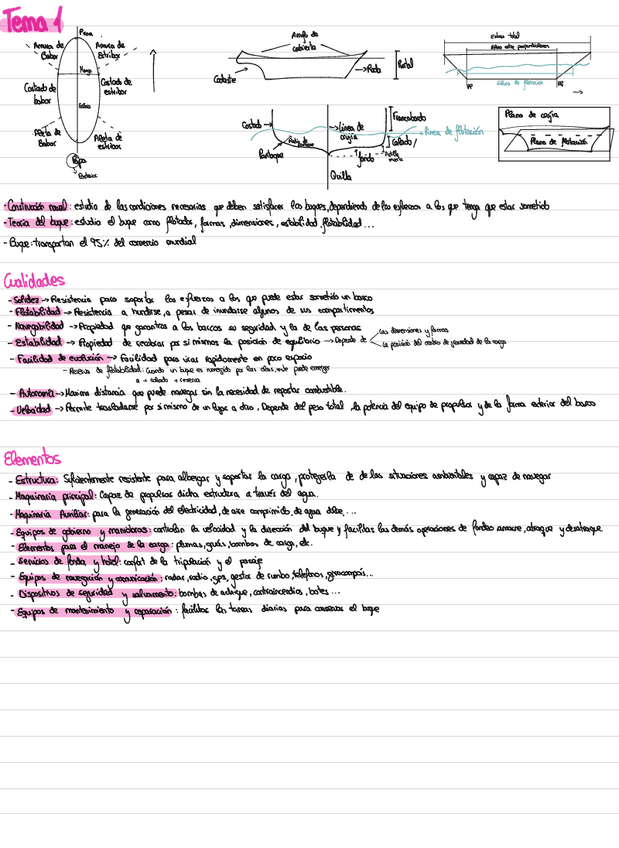 Tema 1
Proa
Amura de Babor
Amura de Estribor
Manga
Costado de babor
Costado de estribor
Eslora
Aleta de Babor
Aleta de estribor
Popa
Arrufo de cubierta
Codaste
Roda
Puntal
Eslora total
Eslora entre perpendiculares
Eslora de flotación
PP
PP
Costado
Línea de crujía
Francobordo
Línea de flotación
Calado
Pantoque
fondo
Quilla
Plano de crujía
Plano de flotación
- Construcción naval: estudio de las condiciones necesarias que deben satisfacer los buques, dependiendo de los esfuerzos a los que tenga que estar sometido
- Teoría del buque: estudia el buque como flotador, formas, dimensiones, estabilidad, flotabilidad...
- Buque: transportan el 95% del comercio mundial
Cualidades
- Solidez → Resistencia para soportar los esfuerzos a los que puede estar sometido un barco
- Flotabilidad → Resistencia a hundirse, a pesar de inundarse algunos de sus compartimentos
- Navegabilidad → Propiedad que garantiza a los barcos su seguridad y la de las personas
- Estabilidad → Propiedad de recobrar por sí mismos la posición de equilibrio → Depende de
Las dimensiones y formas
La posición del centro de gravedad de la carga
- Facilidad de evolución → Facilidad para virar rápidamente en poco espacio
- Reserva de flotabilidad: Cuando un buque es navegado por las olas, este puede emerger
a + calado + reserva
- Autonomía → Máxima distancia que puede navegar sin la necesidad de repostar combustible.
- Velocidad → Permite trasladarse por sí mismo de un lugar a otro. Depende del peso total, la potencia del equipo de propulsor y de la forma exterior del barco
Elementos
- Estructura: Suficientemente resistente para albergar y soportar la carga, protegerla de de las situaciones ambientales y capaz de navegar
- Maquinaria principal: Capaz de propulsar dicha estructura a través del agua.
- Maquinaria Auxiliar: para la generación del electricidad, de aire comprimido, de agua dulce, ...
- Equipos de gobierno y maniobras: controlan la velocidad y la dirección del buque y facilitan las demás operaciones de fondeo amarre, atraque y desatraque.
- Elementos para el manejo de la carga: plumas, grúas, bombas de carga, etc.
- Servicios de fonda y hotel: confort de la tripulación y el pasaje
- Equipos de navegación y comunicación: radar, radio, gps, gestor de rumbo, teléfonos, girocompás...
- Dispositivos de seguridad y salvamento: bombas de achique, contraincendios, botes...
- Equipos de mantenimiento y reparación: facilitar las tareas diarias para conservar el buque